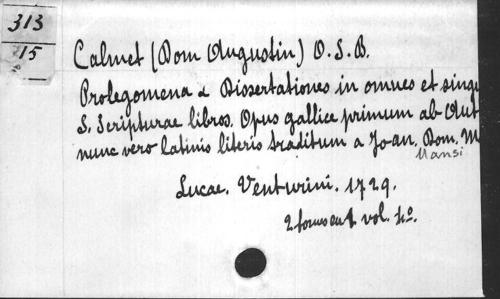 313
15
Calmet (Dom Augustin) O. S. B.
Prolegomena & Dissertationes in omnes et sing
S. Scripturae libros. Opus gallice primum ab Aut
nunc vero latinis literis traditum a Joan. Dom. M
Mansi
Lucae. Venturini. 1729.
2 tomes en 1 vol. fo.